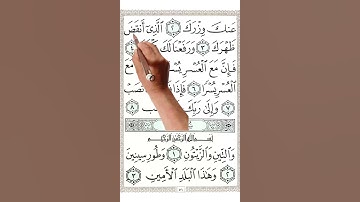 عَنكَ وِزْرَكَ ٢ ٱلَّذِىٓ أَنقَضَ
ظَهْرَكَ ٣ وَرَفَعْنَا لَكَ
فَإِنَّ مَعَ ٱلْعُسْرِ يُسْرًا
ٱلْعُسْرِ يُسْرًا ٦ فَإِذَا
وَإِلَىٰ رَبِّكَ ٨
بِسْمِ ٱللَّهِ ٱلرَّحْمَٰنِ ٱلرَّحِيمِ
وَٱلتِّينِ وَٱلزَّيْتُونِ ١ وَطُورِ سِينِينَ
٢ وَهَٰذَا ٱلْبَلَدِ ٱلْأَمِينِ ٣